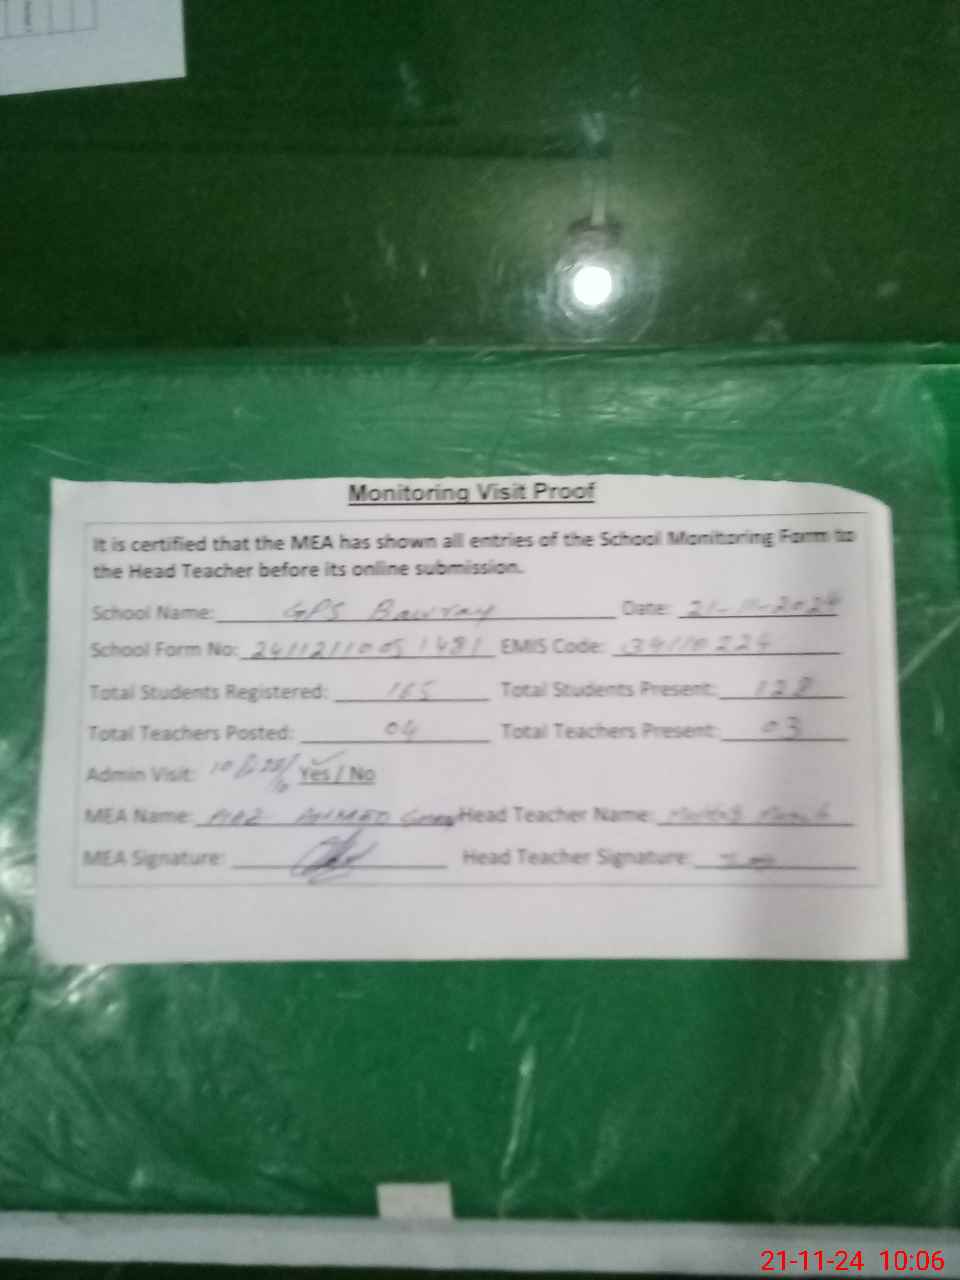 Monitoring Visit Proof
It is certified that the MEA has shown all entries of the School Monitoring Form to
the Head Teacher before its online submission.
School Name: GPS Date: 21-11-2024
School Form No: EMIS Code: 34110224
Total Students Registered: 165 Total Students Present: 128
Total Teachers Posted: 04 Total Teachers Present: 03
Admin Visit: Yes / No
MEA Name: AHMED Head Teacher Name:
MEA Signature: Head Teacher Signature:
21-11-24 10:06